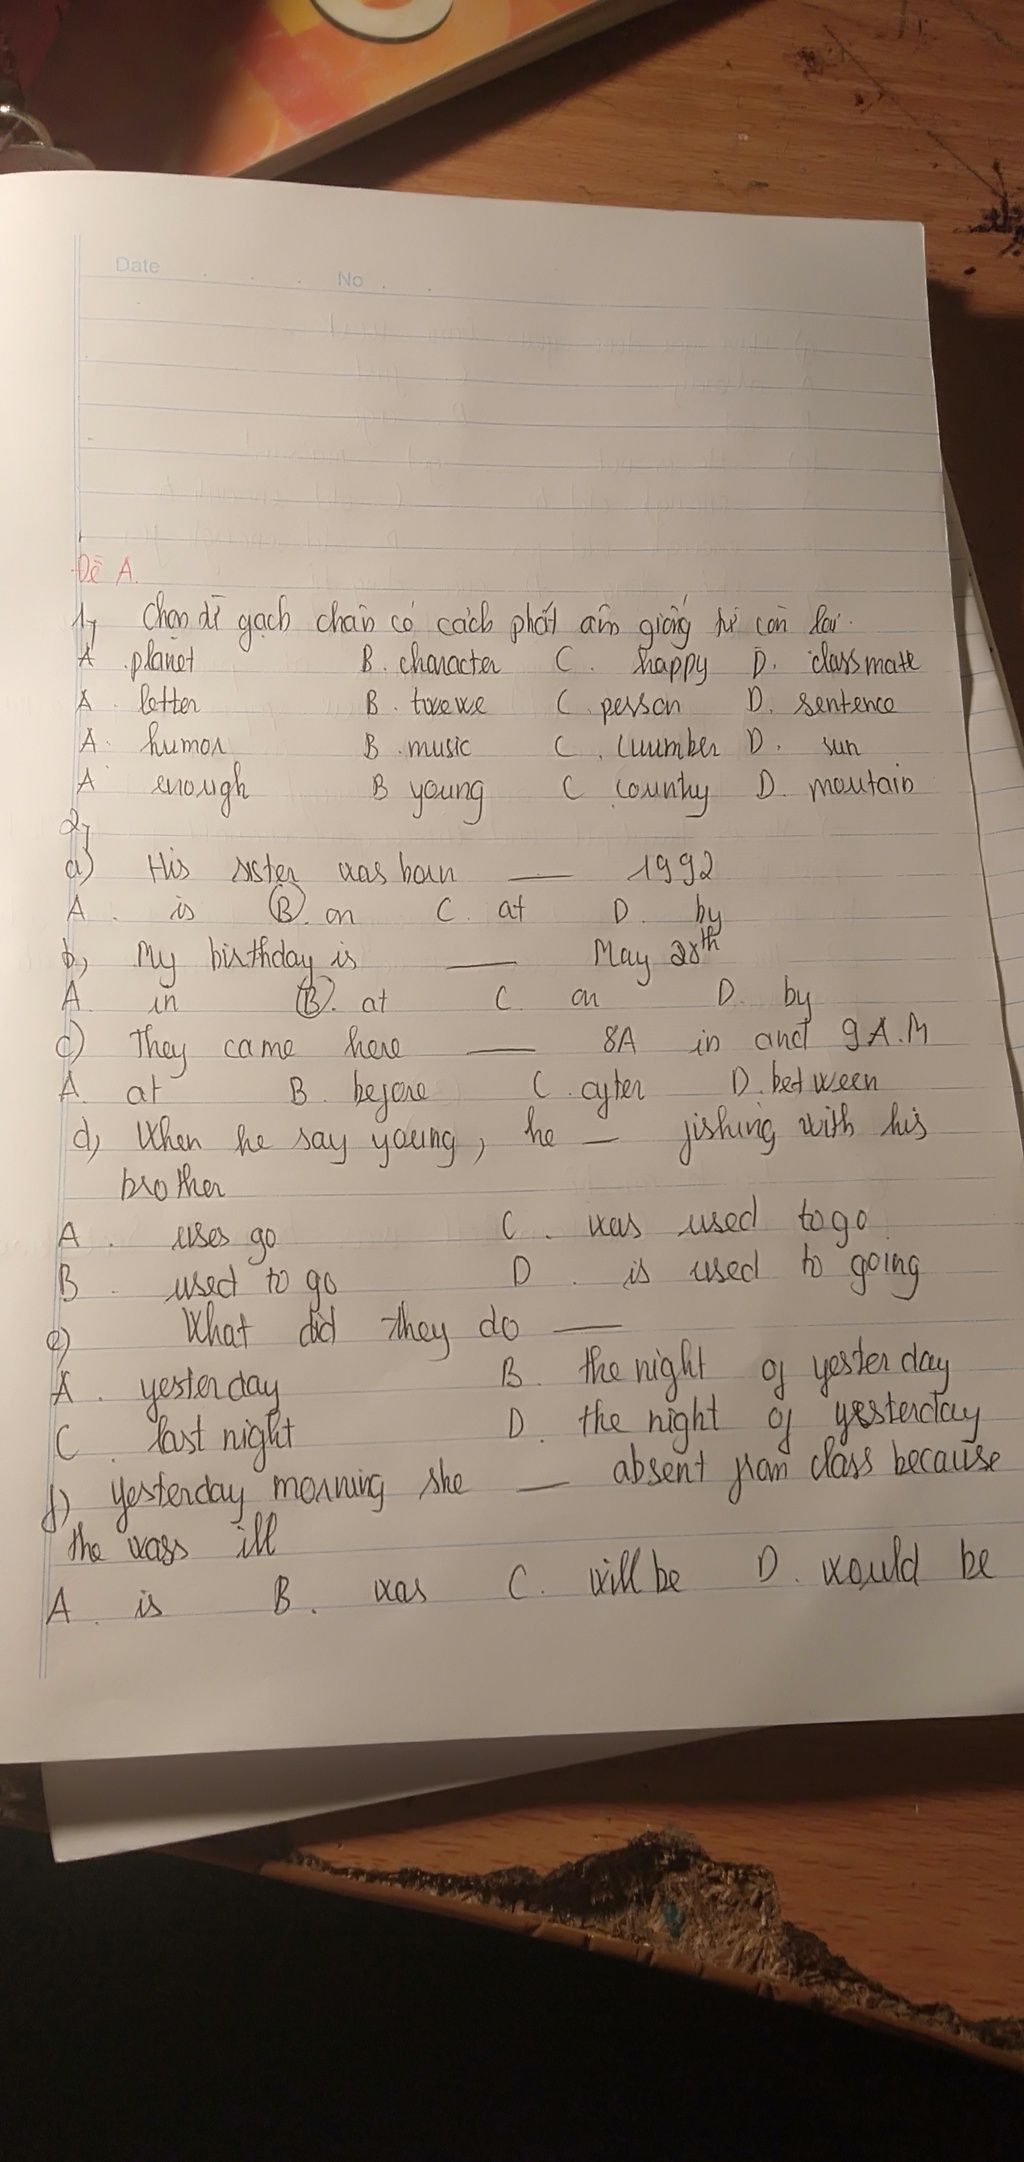 Date No
Đề A.
1, Chọn từ gạch chân có cách phát âm giống từ còn lại.
A. planet B. character C. happy D. classmate
A. letter B. twewe C. person D. sentence
A. humor B. music C. cuumber D. sun
A. enough B young C county D. moutain
2,
a) His sister was born ___ 1992
A. is B. on C. at D. by
b, My birthday is ___ May 28th
A. in B. at C. on D. by
c) They came here ___ 8A in and 9 A.M
A. at B. before C. after D. between
d, When he say young, he _ fishing with his
brother
A. uses go C. was used to go
B. used to go D. is used to going
e) What did they do ___
A. yesterday B. the night of yesterday
C. last night D. the night of yesterday
f) yesterday morning she _ absent from class because
the wass ill
A. is B. was C. will be D. would be